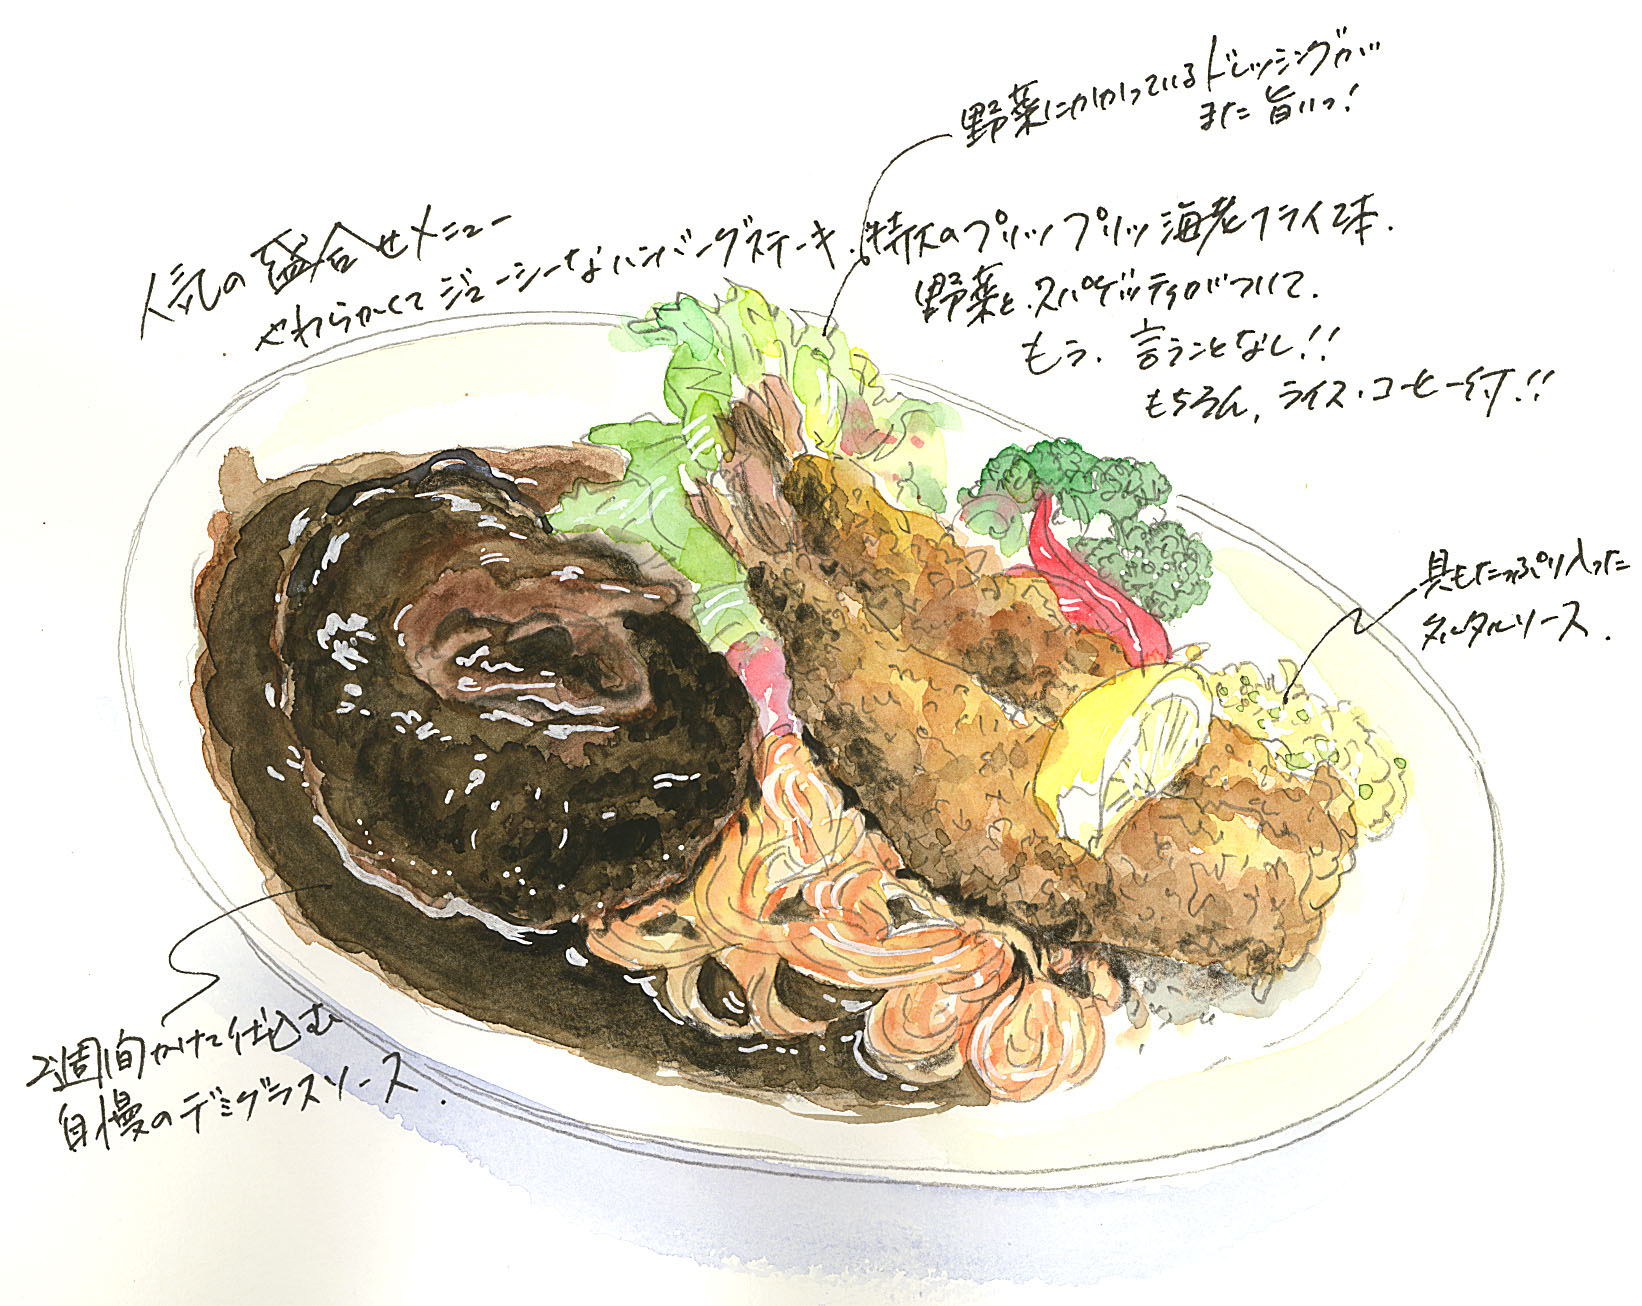 野菜にかかっているドレッシングが
また旨いっ!
人気の盛合せメニュー
やわらかくてジューシーなハンバーグステーキ.特大のプリップリッ海老フライ2本.
野菜と.スパゲッティがついて.
もう.言うことなし!!
もちろん,ライス・コーヒー付!!
具もたっぷり入った
タルタルソース.
2週間かけて仕込む
自慢のデミグラスソース.